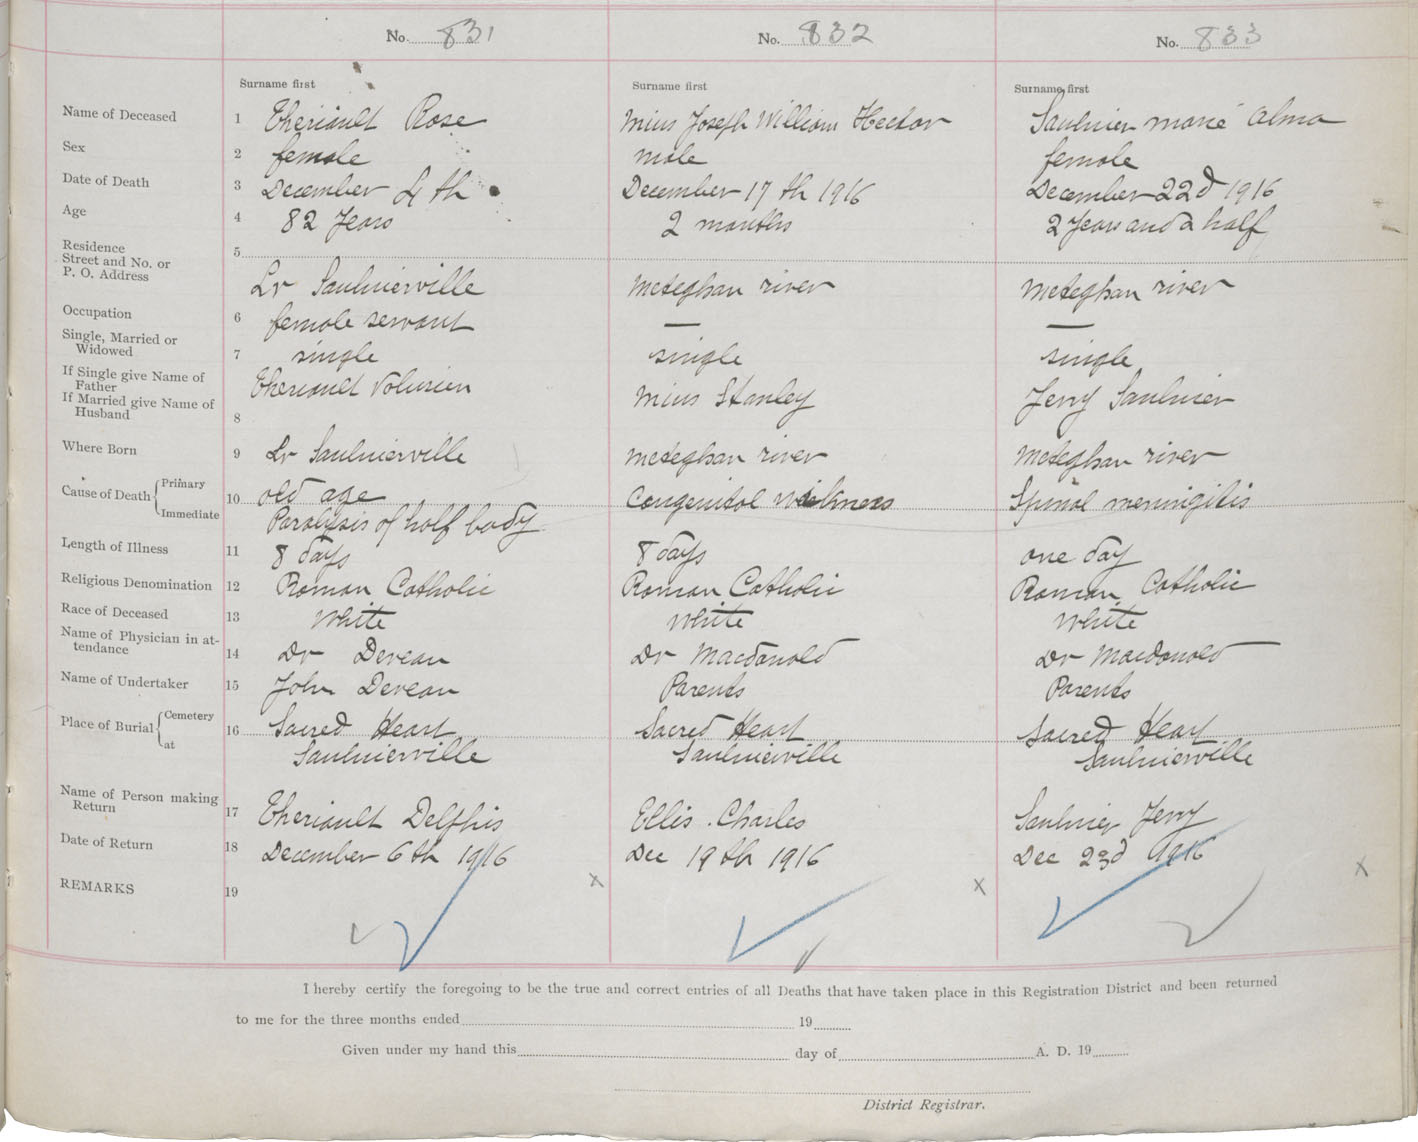 No. 831 No. 832 No. 833
Surname first Surname first Surname first
Name of Deceased 1 Theriault Rose Mius Joseph William Hector Saulnier Marie Alma
Sex 2 female male female
Date of Death 3 December 4th December 17th 1916 December 22d 1916
Age 4 82 years 2 months 2 years and a half
Residence
Street and No. or
P. O. Address 5
Lr Saulnierville Meteghan river Meteghan river
Occupation 6 female servant — —
Single, Married or
Widowed 7 single single single
If Single give Name of
Father
If Married give Name of
Husband 8 Theriault Volusien Mius Stanley Jerry Saulnier
Where Born 9 Lr Saulnierville Meteghan river Meteghan river
Cause of Death { Primary
Immediate 10 old age Congenital weakness Spinal meningitis
Paralysis of half body
Length of Illness 11 8 days 8 days one day
Religious Denomination 12 Roman Catholic Roman Catholic Roman Catholic
Race of Deceased 13 White White White
Name of Physician in at-
tendance 14 Dr Deveau Dr Macdonald Dr Macdonald
Name of Undertaker 15 John Deveau Parents Parents
Place of Burial { Cemetery
at 16 Sacred Heart Sacred Heart Sacred Heart
Saulnierville Saulnierville Saulnierville
Name of Person making
Return 17 Theriault Delphis Ellis Charles Saulnier Jerry
Date of Return 18 December 6th 1916 Dec 19th 1916 Dec 23d 1916
REMARKS 19 x x x
I hereby certify the foregoing to be the true and correct entries of all Deaths that have taken place in this Registration District and been returned
to me for the three months ended 19
Given under my hand this day of A. D. 19
District Registrar.